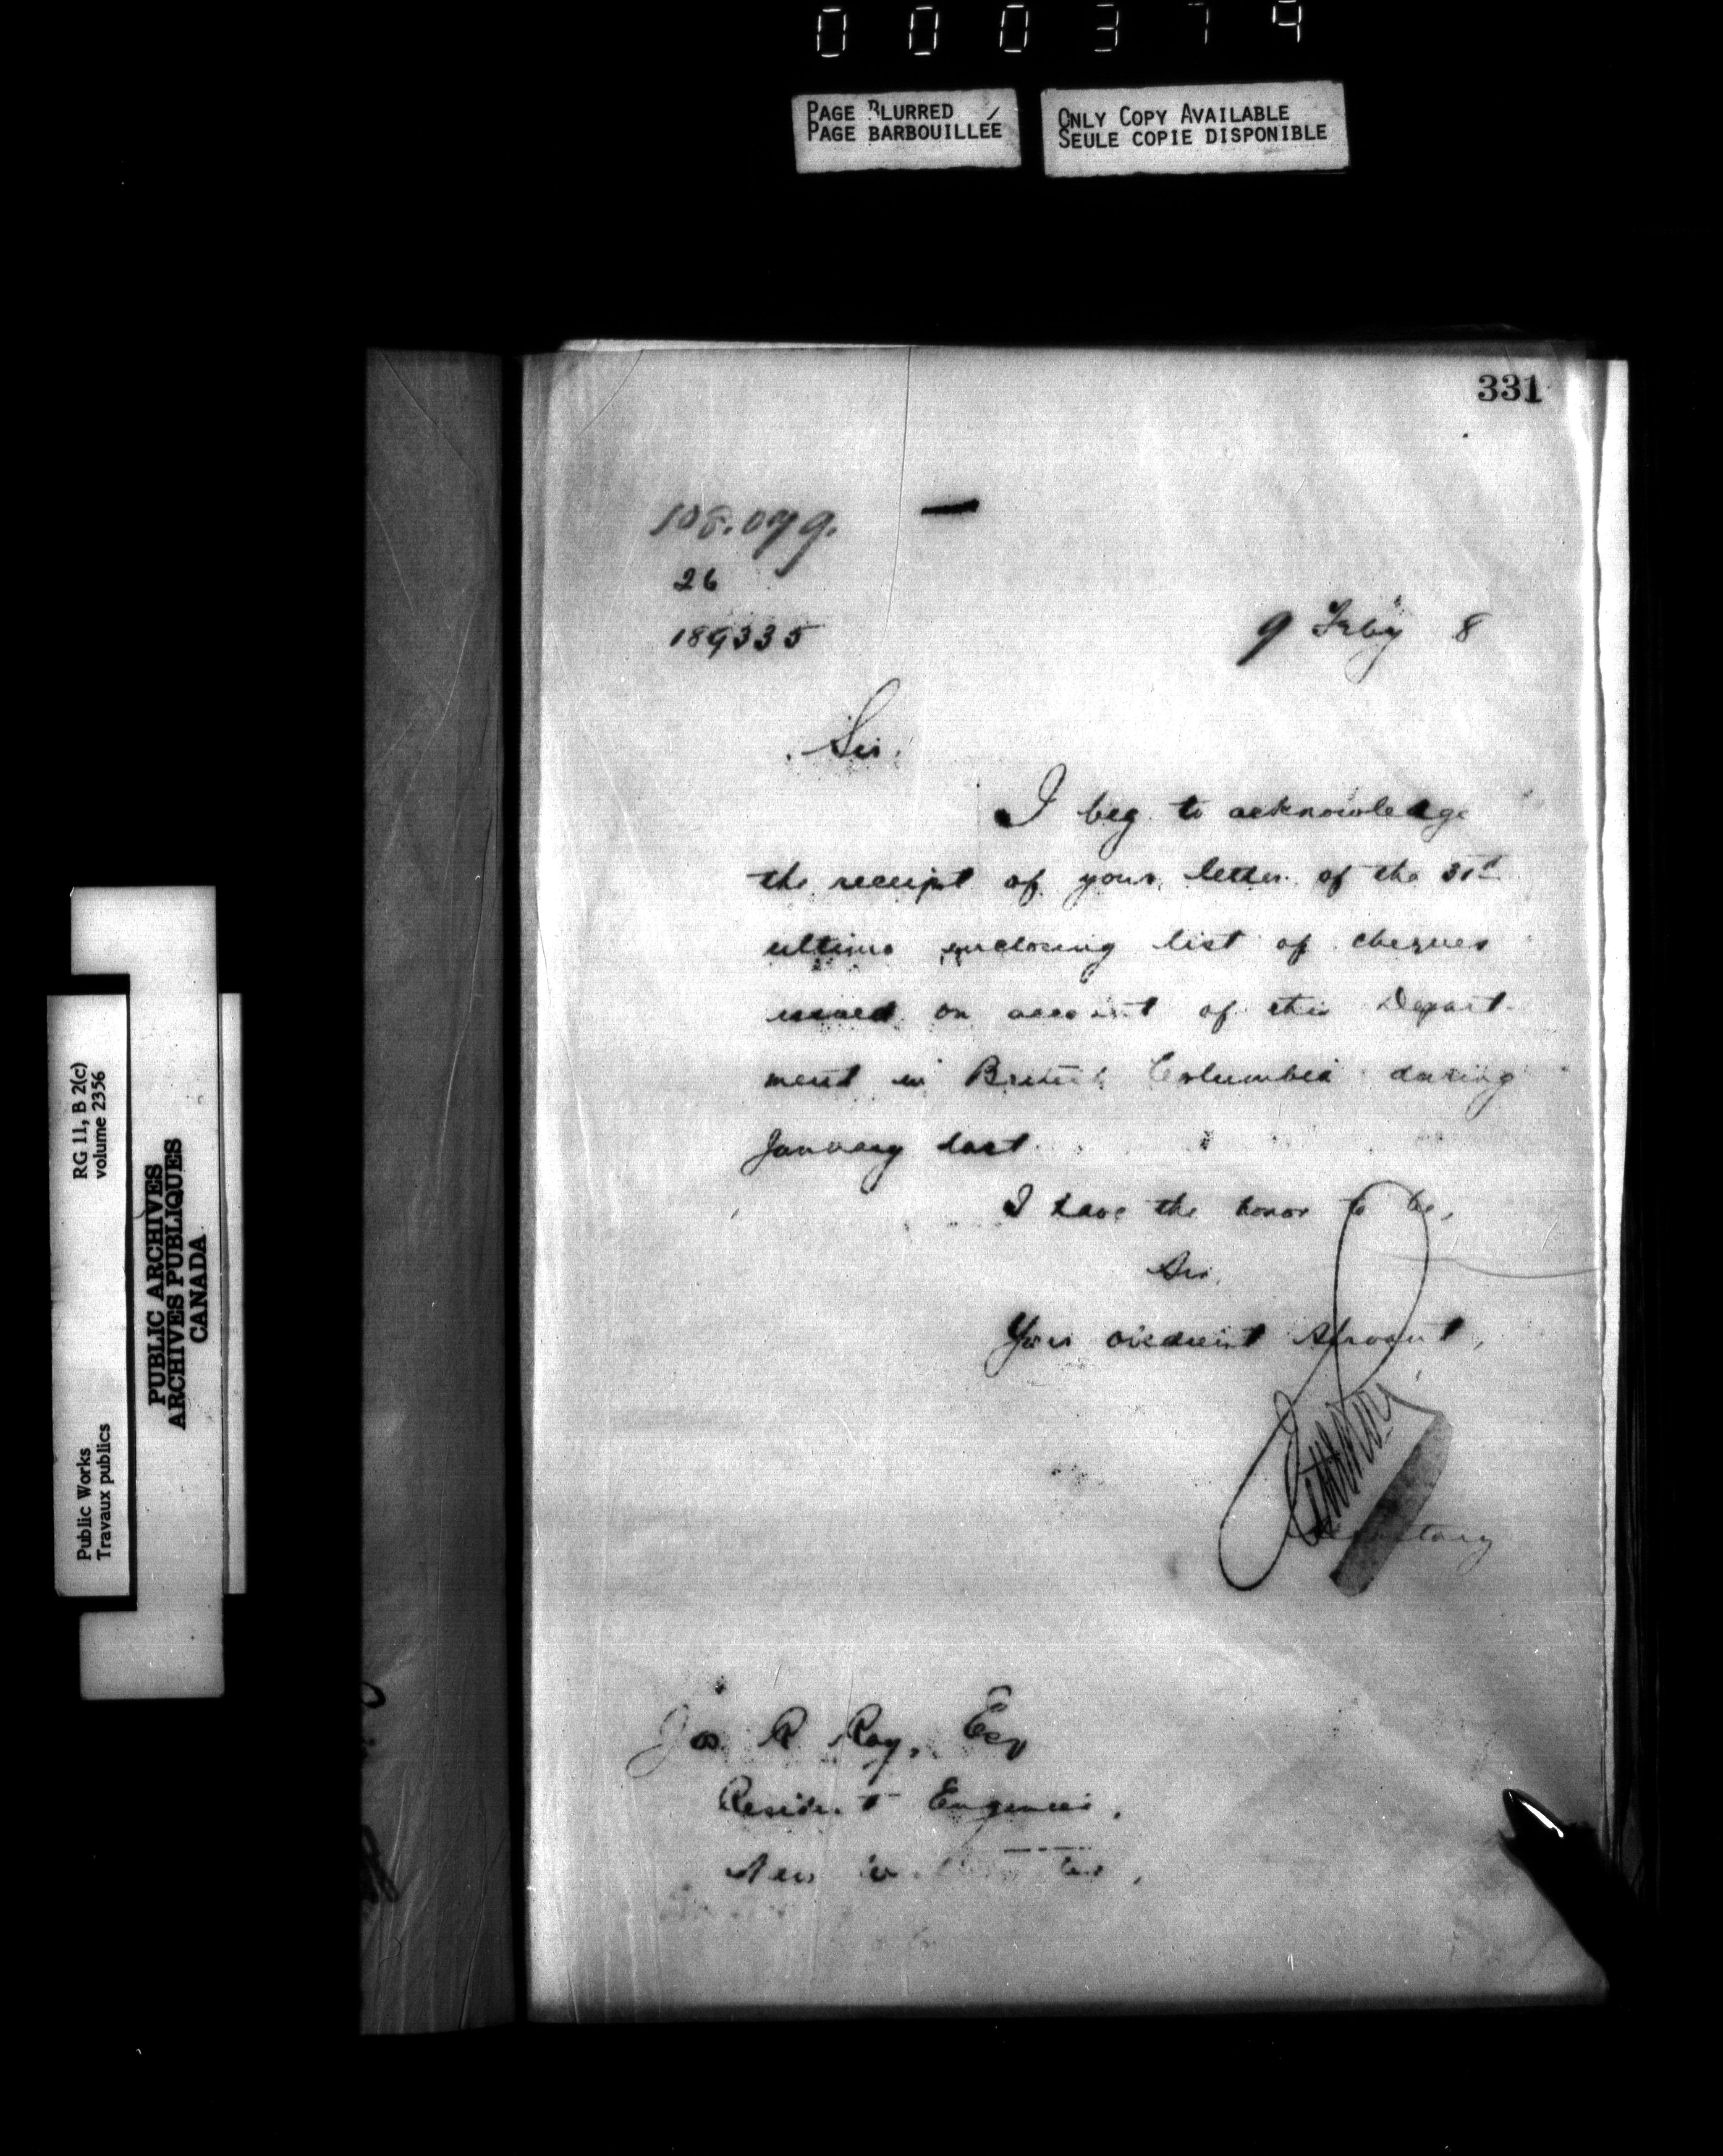 000379
PAGE BLURRED
PAGE BARBOUILLÉE
ONLY COPY AVAILABLE
SEULE COPIE DISPONIBLE
331
108.079.
26
189335
9 Feby 8
Sir,
I beg to acknowledge
the receipt of your letter of the 31st
ultimo enclosing list of cheques
issued on account of this Depart-
ment in British Columbia during
January last.
I have the honor to be,
Sir,
Your obedient Servant,
Secretary
Jos R Roy, Esq
Resident Engineer,
New
RG 11, B 2(c)
volume 2356
Public Works
Travaux publics
PUBLIC ARCHIVES
ARCHIVES PUBLIQUES
CANADA